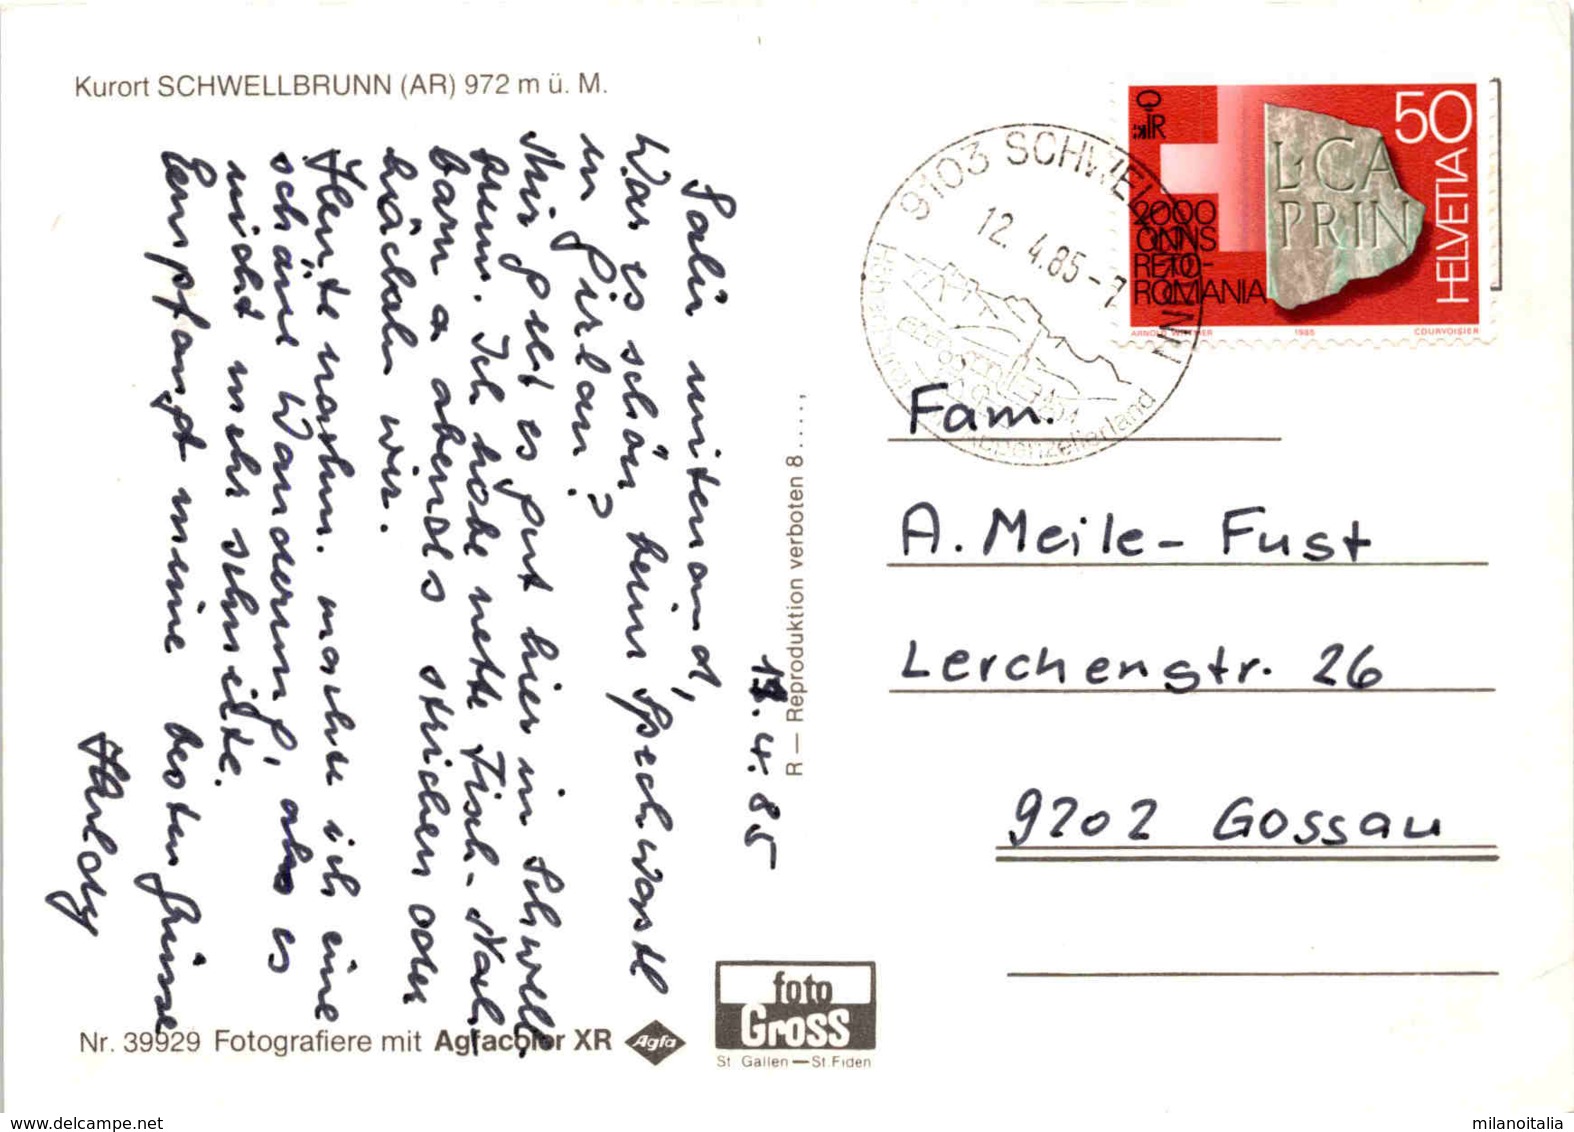 Kurort SCHWELLBRUNN (AR) 972 m ü. M.
11.4.85
Salü mitenand,
War es schön beim Spechwasth
in Girlan?
Mir geht es gut hier in Schwell-
brunn. Ich habe nette Tisch-Nach-
barn a abends stricken oder
häckeln wir.
Heute nachm. mache ich eine
schöne Wanderung, also es
nicht mehr schneite.
Empfangt meine besten Grüsse
Hulda
Nr. 39929 Fotografiere mit Agfacolor XR Agfa
R — Reproduktion verboten 8.....,
foto
Gross
St. Gallen — St. Fiden
9103 SCHWELLBRUNN
12. 4.85-7
Appenzellerland
50
HELVETIA
L·CA
PRIN
2000
ONNS
RETO-
ROMANIA
1985
COURVOISIER
Fam.
A. Meile-Fust
Lerchenstr. 26
9202 Gossau
www.delcampe.net
milanoitalia